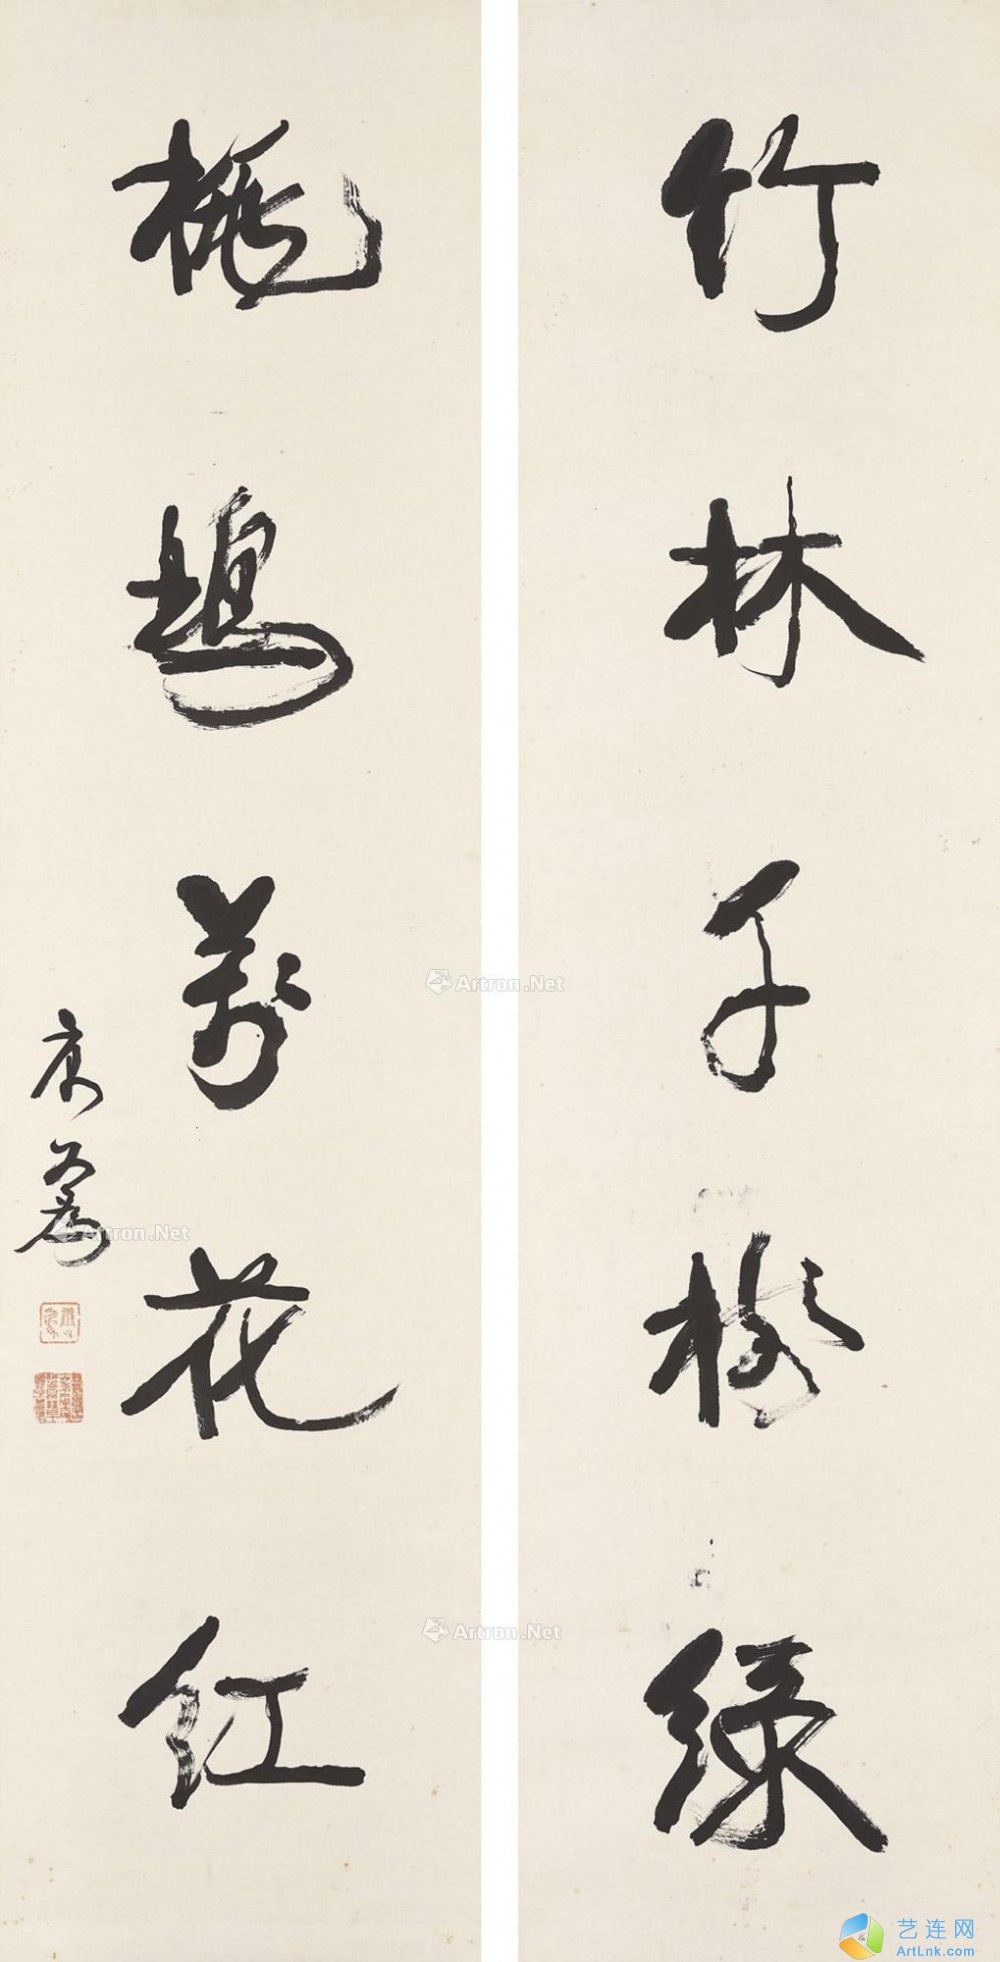 竹林千樹綠
桃塢萬花紅
康有為
Artron.Net
Artron.Net
Artron.Net
艺连网
ArtLnk.com